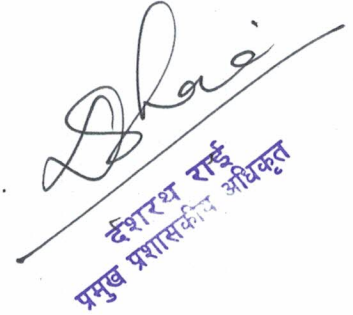 दशरथ राई
प्रमुख प्रशासकीय अधिकृत